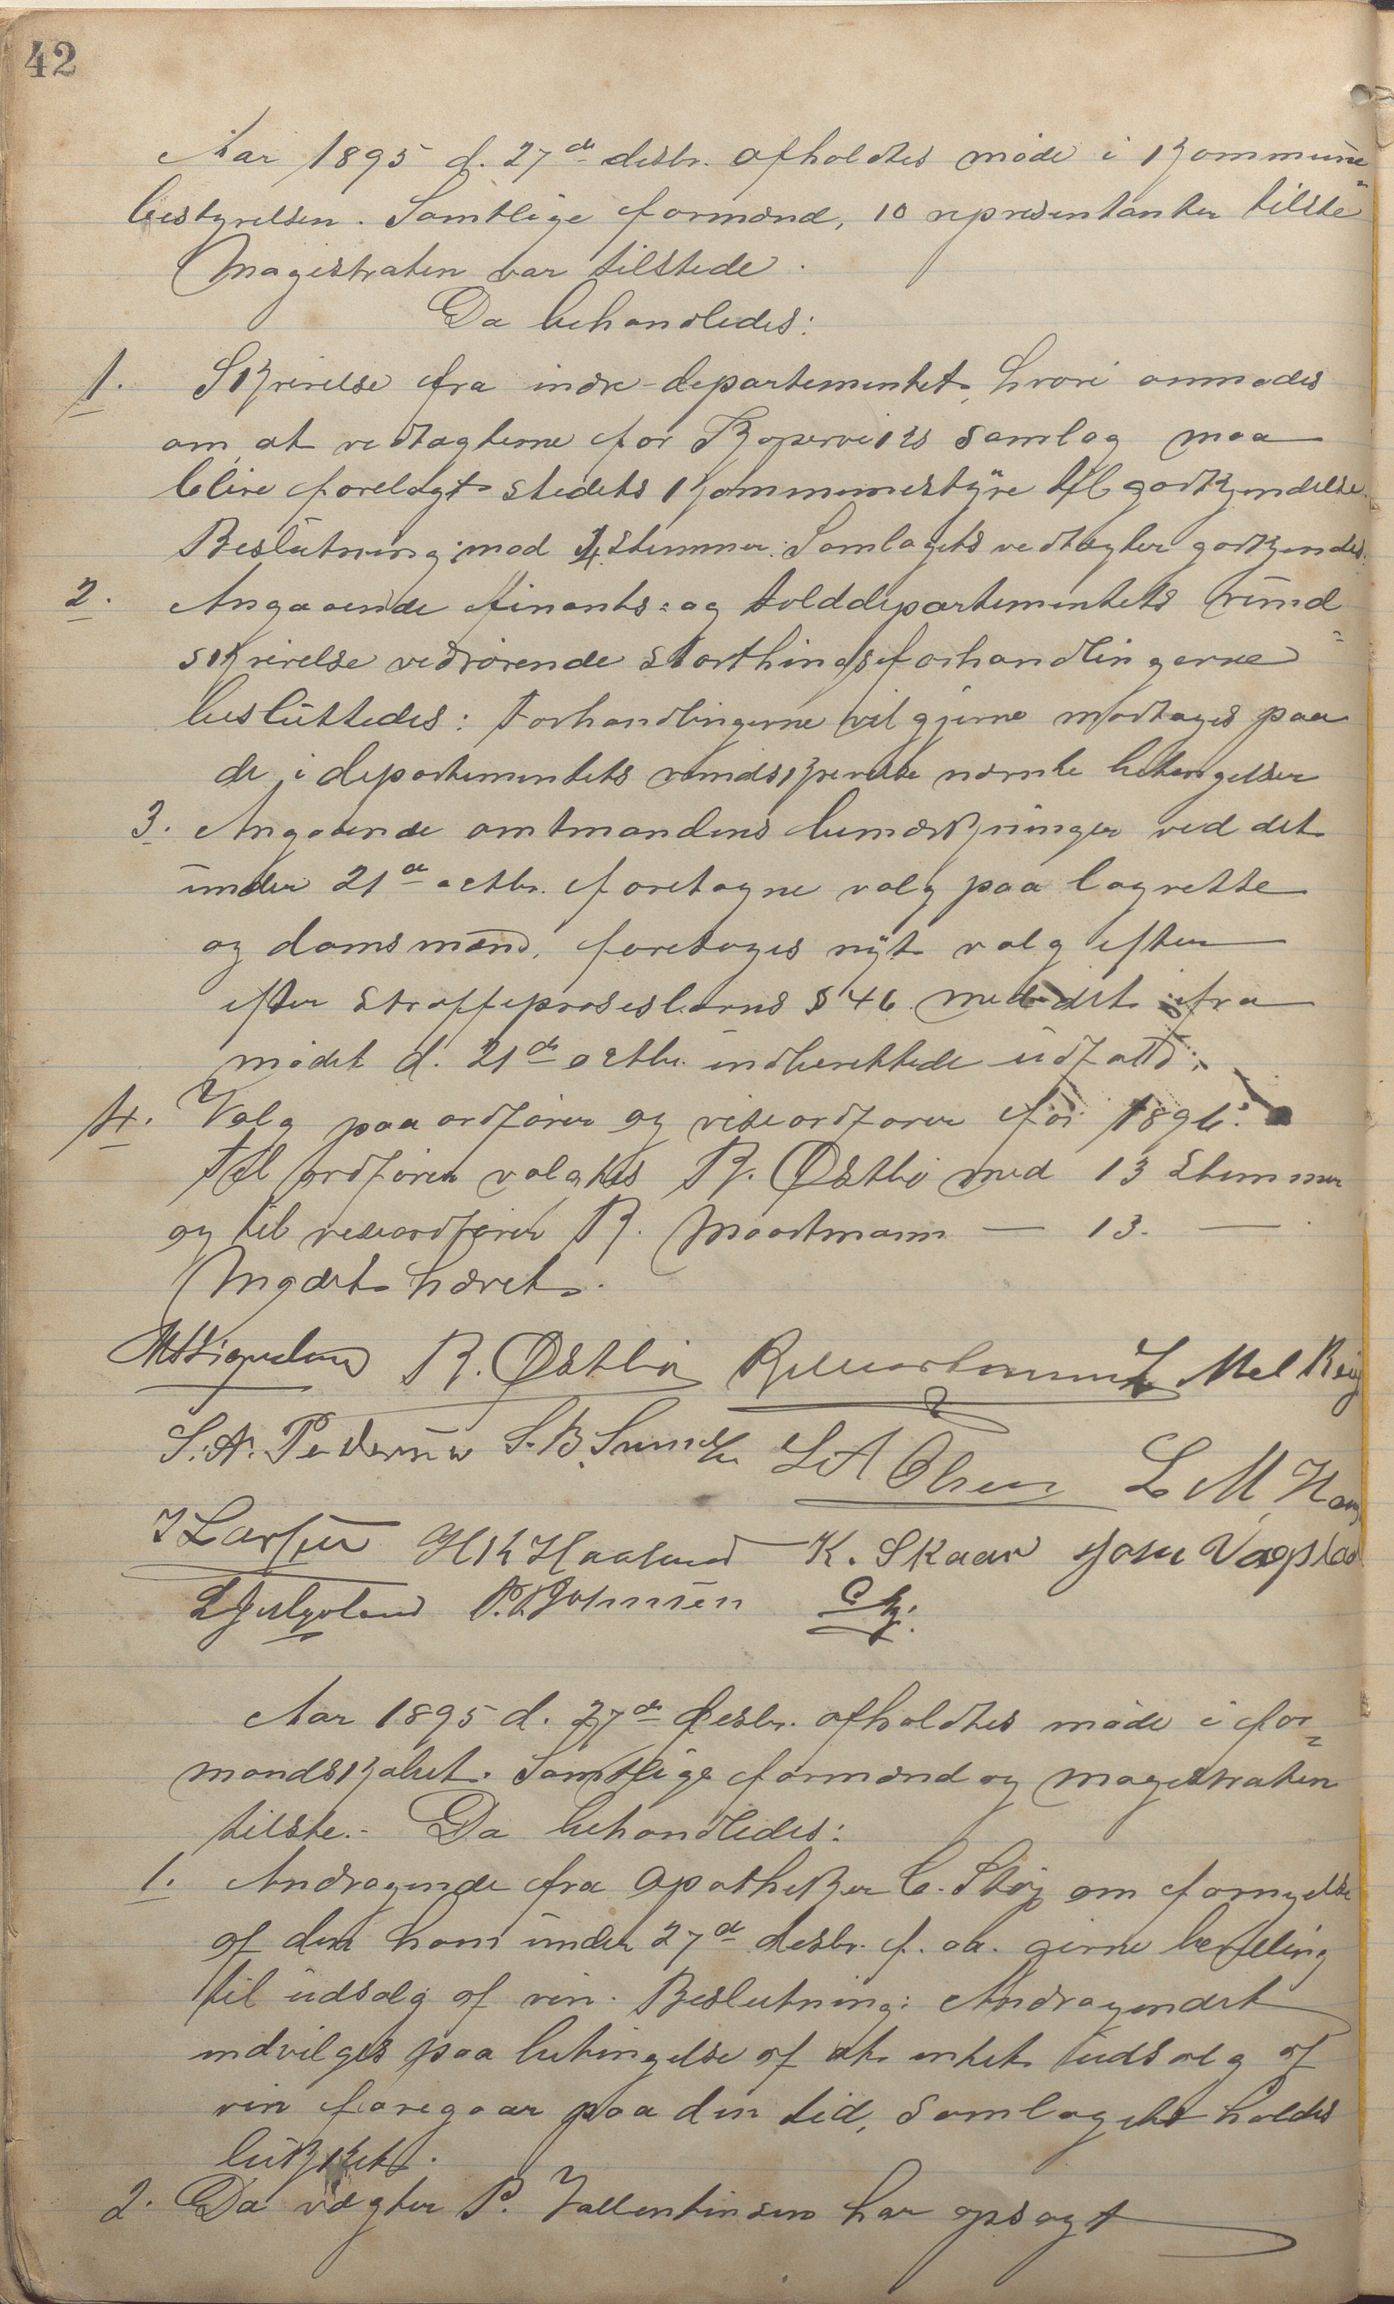 42
Aar 1895 d. 27de desbr. afholdtes møde i kommune
bestyrelsen. Samtlige formænd, 10 representanter tilste
Magistraten var tilstede.
Da behandledes:
1. Skrivelse fra indre-departementet, hvori anmodes
om, at vedtægterne for Koperviks samlag maa
blive forelagt stedets kommunestyre til godkjendelse.
Beslutning; mod 4 stemmer: Samlagets vedtægter godkjendes.
2. Angaaende finants- og tolddepartementets rund
skrivelse vedrørende storthingsforhandlingerne
besluttedes: Forhandlingerne vil gjerne modtages paa
de i departementets rundskrivelse nævnte betingelser
3. Angaaende amtmandens bemærkninger ved det
under 21de octbr. foretagne valg paa lagrette
og domsmænd, foretages nyt valg efter
efter straffeproseslovens § 46 med det fra
mødet d. 21de octbr. indberettede udfald.
4. Valg paa ordfører og viseordfører for 1896:
Til ordfører valgtes R. Østbø med 13 stemmer
og til viseordfører R. Moortmann — 13. —
Mødet hævet.
R. Østbø
S. A. Pedersen S. B. Sund L A Olsen L. M.
I Larsen H K Haaland K. Skaar Vagstad
Johnsen
Aar 1895 d. 27de desbr. afholdtes møde i for-
mandskabet. Samtlige formænd og magistraten
tilste.- Da behandledes:
1. Andragende fra apotheker C. Krog om fornyelse
af den ham under 27de desbr. f. aa. givne bevilling
til udsalg af vin. Beslutning: Andragendet
indvilges paa betingelse af at intet udsalg af
vin foregaar paa den tid, samlaget holdes
lukket.
2. Da vægter P. Vallentinsen har opsagt